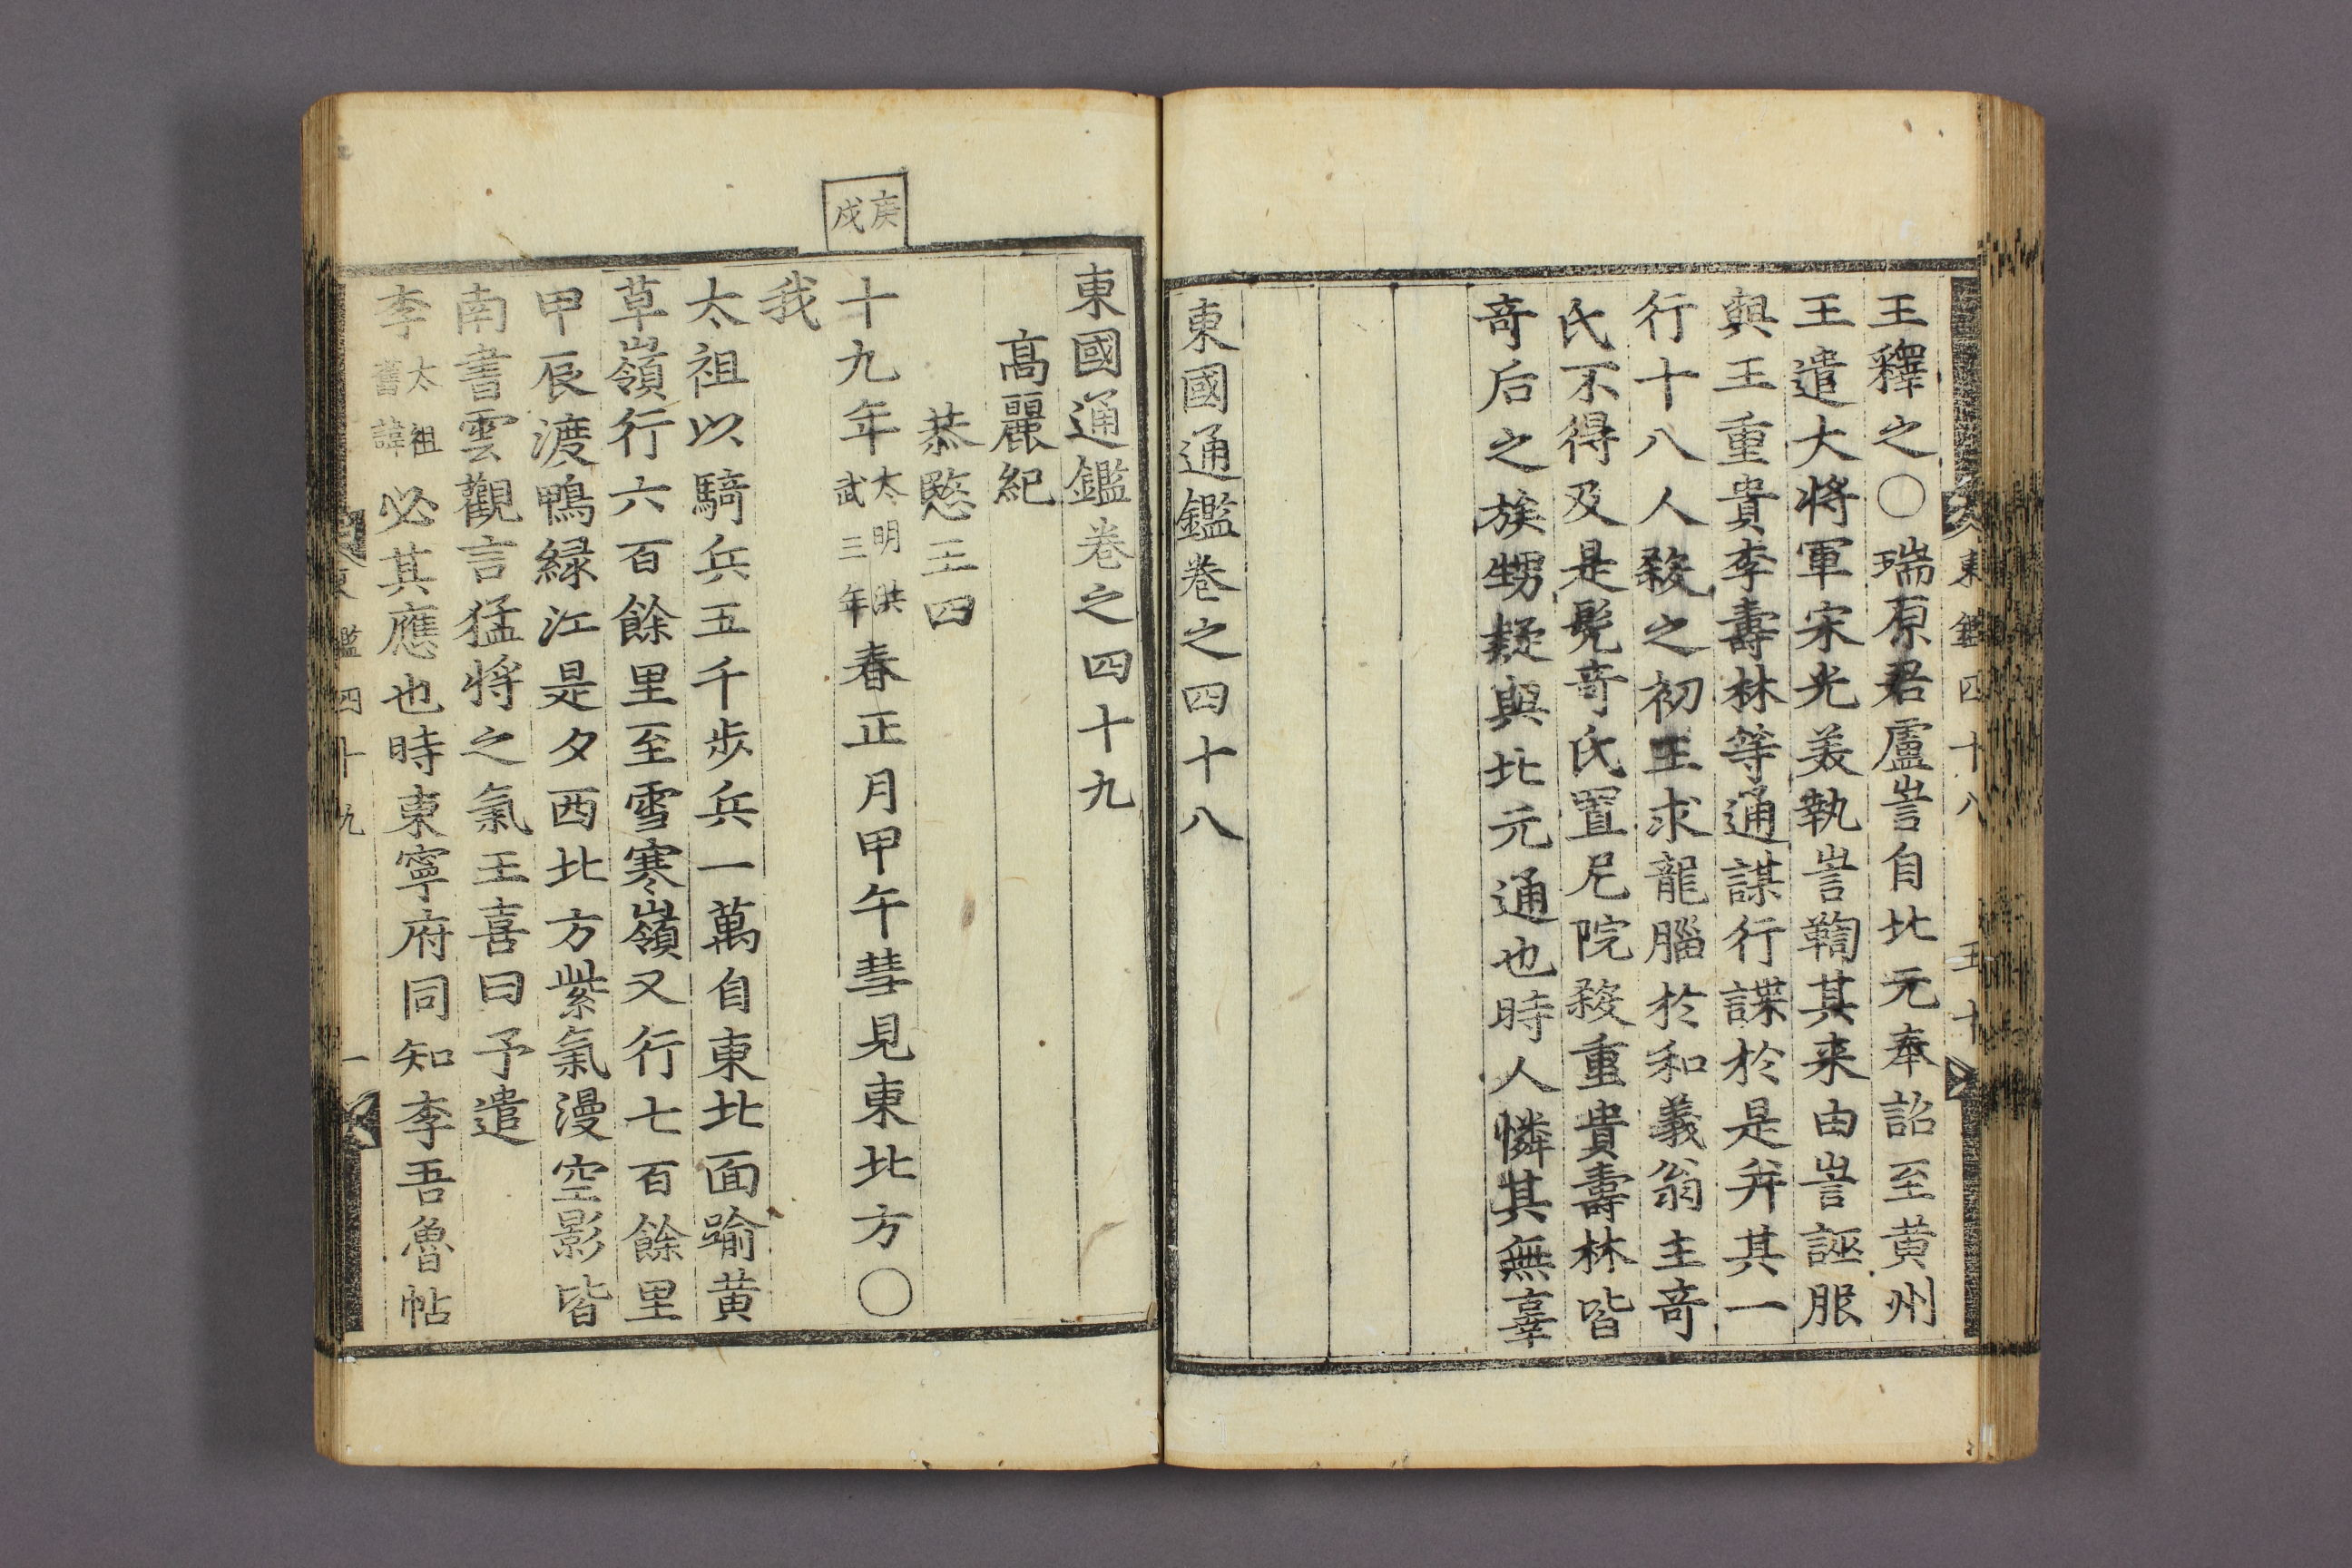 王釋之〇瑞原君盧訔自北元奉詔至黄州
王遣大將軍宋光美執訔鞫其来由訔誣服
與王重貴李壽林等通謀行諜於是并其一
行十八人殺之初王求龍腦於和義翁主竒
氏不得及是髡竒氏置尼院殺重貴壽林皆
竒后之族甥疑與北元通也時人憐其無辜
東國通鑑卷之四十八
東國通鑑卷之四十九
髙麗紀
恭愍王四
庚戌
十九年大明洪武三年春正月甲午彗見東北方〇
我
太祖以騎兵五千步兵一萬自東北面踰黄
草嶺行六百餘里至雪寒嶺又行七百餘里
甲辰渡鴨緑江是夕西北方紫氣漫空影皆
南書雲觀言猛将之氣王喜曰予遣
李太祖舊諱必其應也時東寧府同知李吾魯帖